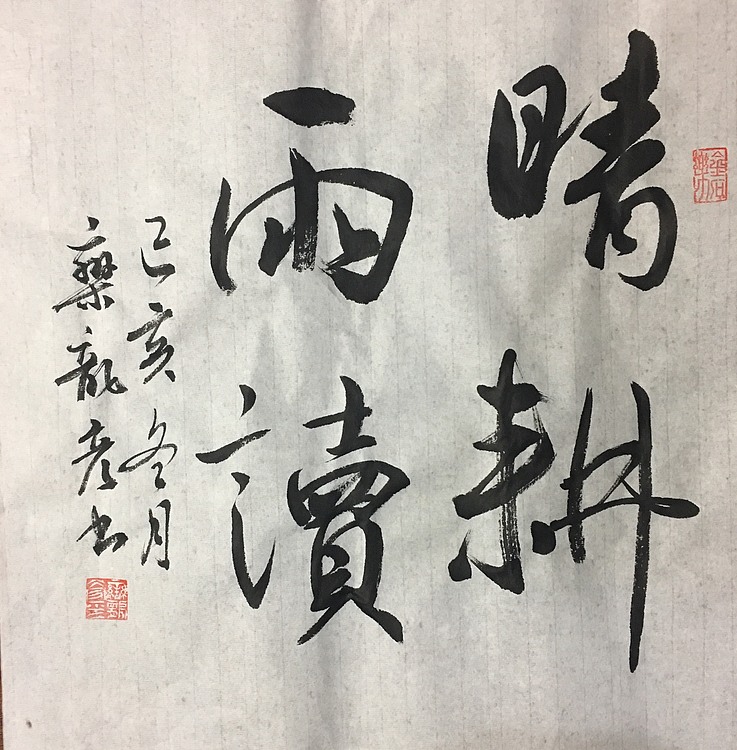 晴耕
雨讀
己亥冬月
欒龍彥书